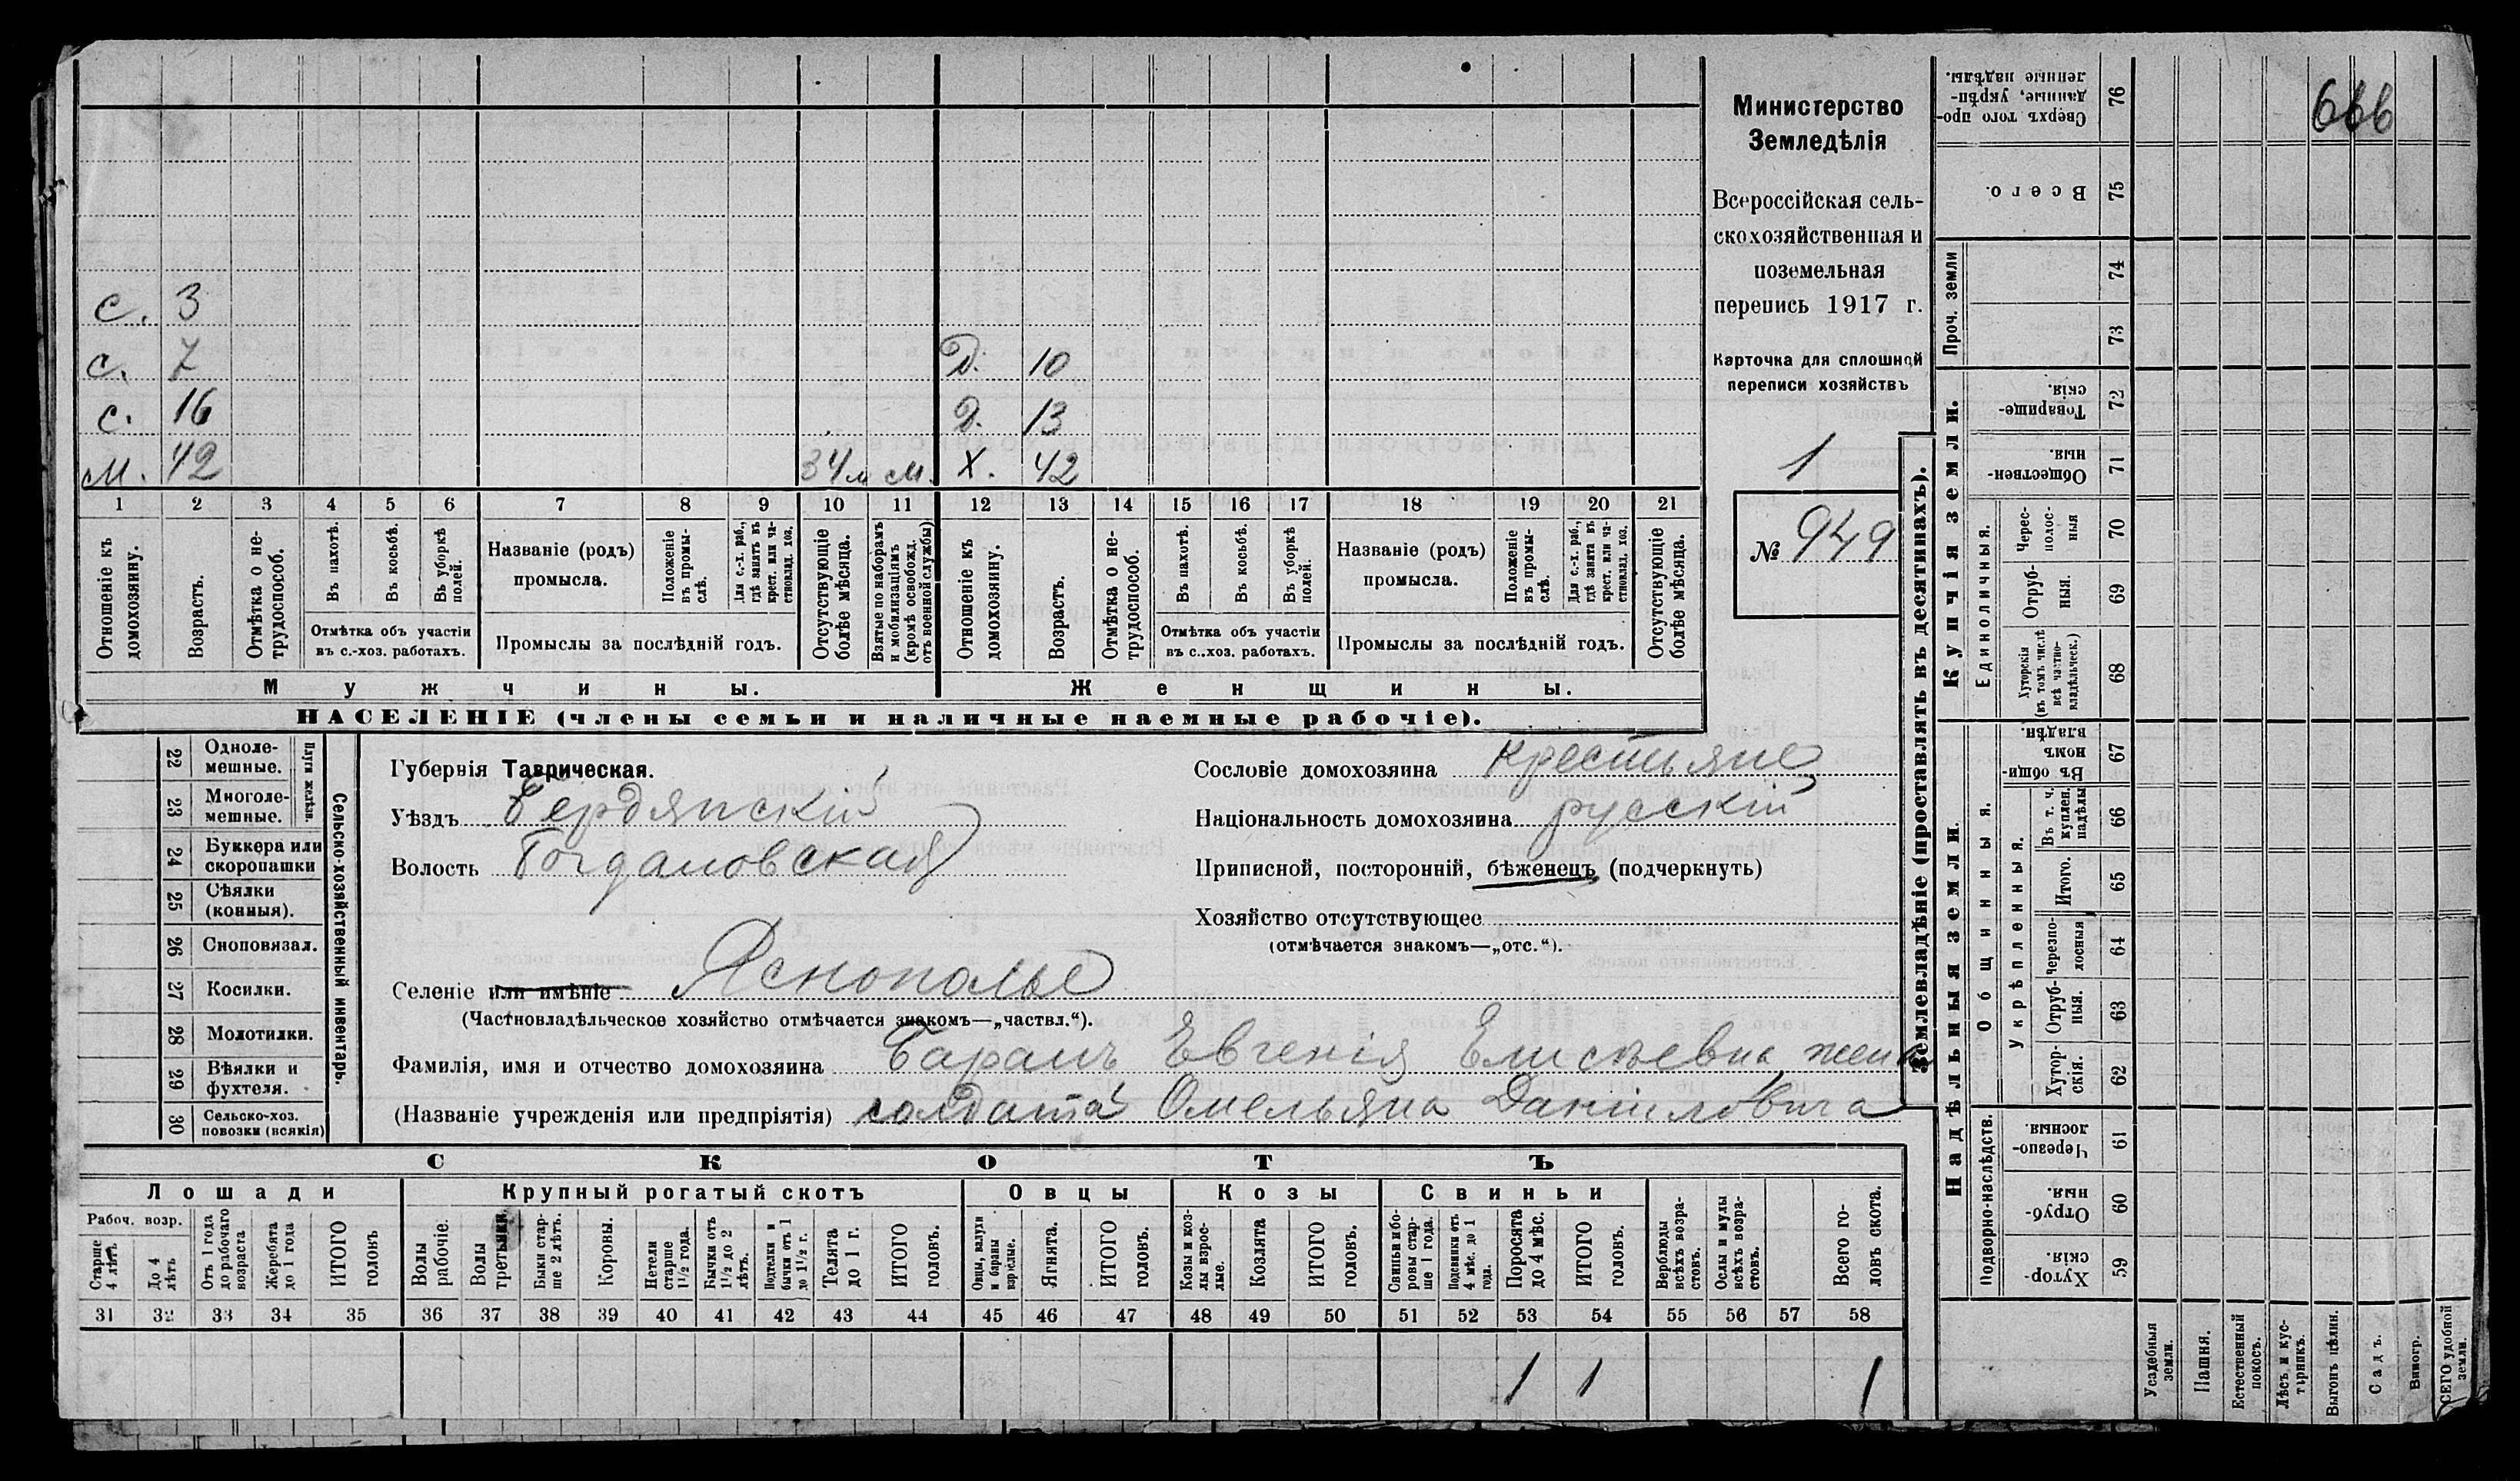 с. 3
с. 7 Д. 10
с. 16 Д. 13
м. 42 34 м м. Х. 42
1 2 3 4 5 6 7 8 9 10 11 12 13 14 15 16 17 18 19 20 21
Отношеніе къ домохозяину.
Возрастъ.
Отмѣтка о не-трудоспособ.
Въ пахотѣ.
Въ косьбѣ.
Въ уборкѣ полей.
Отмѣтка объ участіи
въ с.-хоз. работахъ.
Названіе (родъ)
промысла.
Положеніе въ промы-слѣ.
Для с.-х. раб., гдѣ занятъ въ крест. или ча-стновлад. хоз.
Промыслы за послѣдній годъ.
Отсутствующіе болѣе мѣсяца.
Взятые по наборамъ и мобилизаціямъ (кромѣ освобожд. отъ военной службы)
Отношеніе къ домохозяину.
Возрастъ.
Отмѣтка о не-трудоспособ.
Въ пахотѣ.
Въ косьбѣ.
Въ уборкѣ полей.
Отмѣтка объ участіи
въ с.-хоз. работахъ.
Названіе (родъ)
промысла.
Положеніе въ промы-слѣ.
Для с.-х. раб., гдѣ занята въ крест. или ча-стновлад. хоз.
Промыслы за послѣдній годъ.
Отсутствующіе болѣе мѣсяца.
Мужчины. Женщины.
НАСЕЛЕНІЕ (члены семьи и наличные наемные рабочіе).
Министерство
Земледѣлія
Всероссійская сель-
скохозяйственная и
поземельная
перепись 1917 г.
Карточка для сплошной
переписи хозяйствъ
1
№ 949
22 Одноле-мешные.
23 Многоле-мешные.
Плуги желѣзн.
24 Буккера или скоропашки
25 Сѣялки (конныя).
26 Сноповязал.
27 Косилки.
28 Молотилки.
29 Вѣялки и фухтеля.
30 Сельско-хоз. повозки (всякія)
Сельско-хозяйственный инвентарь.
Губернія Таврическая.
Уѣздъ Бердянскій
Волость Богдановская
Селеніе или имѣніе Яснополье
(Частновладѣльческое хозяйство отмѣчается знакомъ—„частвл.“).
Фамилія, имя и отчество домохозяина Баранъ Евгенія Елисѣевна жена
(Названіе учрежденія или предпріятія) солдата Омельяна Даніиловича
Сословіе домохозяина крестьяне
Національность домохозяина русскій
Приписной, посторонній, бѣженецъ (подчеркнуть)
Хозяйство отсутствующее
(отмѣчается знакомъ—„отс.“).
СКОТЪ
Лошади Крупный рогатый скотъ Овцы Козы Свиньи
Рабоч. возр.
Старше 4 лѣтъ
До 4 лѣтъ
Отъ 1 года до рабочаго возраста
Жеребята до 1 года
ИТОГО головъ
Волы рабочіе.
Волы третьяки.
Быки стар-ше 2 лѣтъ.
Коровы.
Нетели старше 1½ года.
Бычки отъ 1½ до 2 лѣтъ.
Подтелки и бычки отъ 1 до 1½ г.
Телята до 1 г.
ИТОГО головъ.
Овцы, валухи и бараны взрослые.
Ягнята.
ИТОГО головъ.
Козы и коз-лы взрос-лые.
Козлята
ИТОГО головъ.
Свиньи и бо-ровы стар-ше 1 года.
Подсвинки отъ 4 мѣс. до 1 года.
Поросята до 4 мѣс.
ИТОГО головъ.
Верблюды всѣхъ возра-стовъ.
Ослы и мулы всѣхъ возра-стовъ.
Всего го-ловъ скота.
31 32 33 34 35 36 37 38 39 40 41 42 43 44 45 46 47 48 49 50 51 52 53 54 55 56 57 58
1 1 1
Землевладѣніе (проставлять въ десятинахъ).
Купчія земли.
Надѣльныя земли.
Сверхъ того про-данные, укрѣп-ленные надѣлы. 76
Всего. 75
Проч. земли 74 73
Товарище-скія. 72
Обществен-ныя. 71
Единоличныя.
Черес-полос-ныя 70
Отруб-ныя. 69
Хуторскія (въ томъ числѣ всѣ частно-владѣльческ.) 68
Общинныя.
Въ общи-номъ владѣн. 67
Укрѣпленныя.
Въ т. ч. куплен. надѣлы 66
Итого. 65
Черезпо-лосныя 64
Отруб-ныя. 63
Хутор-скія. 62
Подворно-наслѣдств.
Черезпо-лосныя. 61
Отруб-ныя. 60
Хутор-скія. 59
Усадебныя земли.
Пашня.
Естественный покосъ.
Лѣсъ и кус-тарникъ.
Выгонъ цѣлин.
Садъ.
Виногр.
ВСЕГО удобной земли.
666